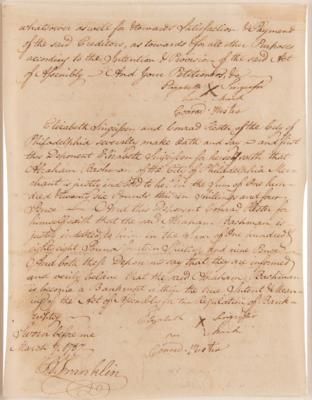 whatsoever as well for & towards Satisfaction & Payment
of the said Creditors, as towards & for all other Purposes
according to the Intention & Provision of the said Act
of Assembly — And Your Petitioners, &c
Elizabeth X
her mark
Conrad
Elizabeth and Conrad of the City of
Philadelphia severally make Oath and Say — and first
this Deponent Elizabeth for herself saith that
Abraham of the City of Philadelphia Mer-
chant is justly indebted to her in the Sum of One hun-
dred Pounds Shillings and four
Pence — And this Deponent Conrad for
himself saith that the said Abraham
is justly indebted to him in the Sum of One hundred
eight Pounds Shillings and nine Pence
And both these Deponents say that they are informed
and verily believe that the said Abraham
is become a Bankrupt within the true Intent & Mean-
ing of the Act of Assembly for the Regulation of Bank-
ruptcy
Elizabeth X
mark
Sworn before me
Conrad
March 1787
B Franklin